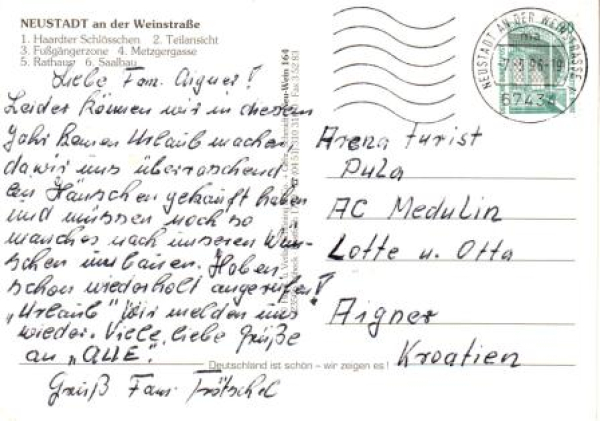 NEUSTADT an der Weinstraße
1. Haardter Schlösschen 2. Teilansicht
3. Fußgängerzone 4. Metzgergasse
5. Rathaus 6. Saalbau
Liebe Fam. Aigner!
Leider können wir in diesem
Jahr keinen Urlaub machen,
da wir uns überraschend
ein Häuschen gekauft haben
und müssen noch so
manches nach unseren Wün-
schen umbauen. Haben
schon wiederholt angerufen!
"Urlaub" Wir melden uns
wieder. Viele, liebe Grüße
an "ALLE".
Gruß Fam. Frötschel
Deutschland ist schön – wir zeigen es!
NEUSTADT AN DER WEINSTRASSE
67434
Arena turist
Pula
AC Medulin
Lotte u. Otto
Aigner
Kroatien